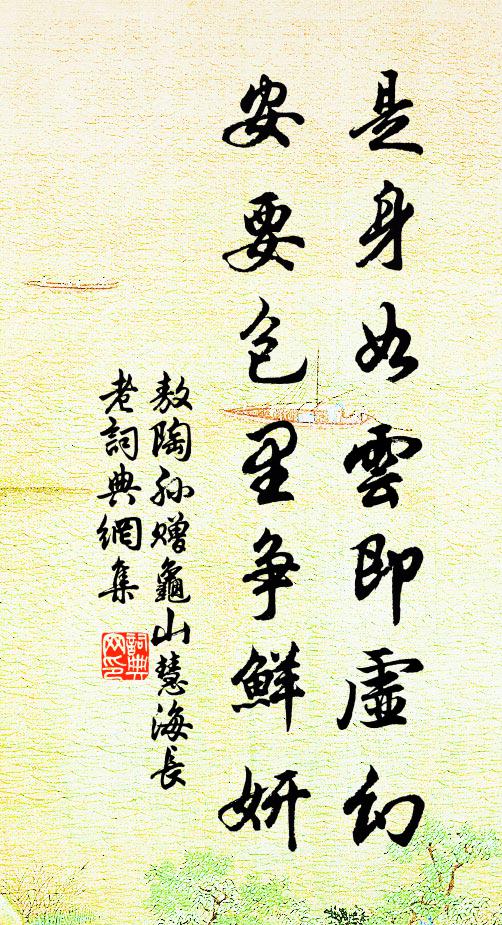 是身如雲即虛幻
安要色里争鮮妍
敖陶孫贈龜山慧海長
老詞典網集
詞典
网印